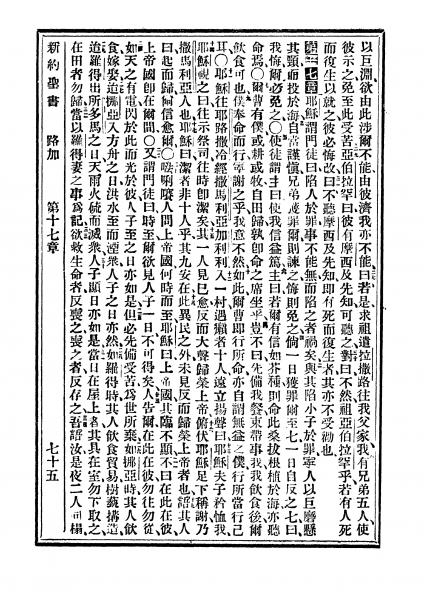 以巨淵欲由此涉爾不能由彼濟我亦不能曰若是求祖遣拉撒路往我父家我有兄弟五人使
彼示之免至此受苦亞伯拉罕曰彼有摩西及先知可聽之對曰不然祖亞伯拉罕乎若有人死
而復生以就之彼必悔改曰不聽摩西及先知即有死而復生者其亦不受勸也
第十七章耶穌謂門徒曰陷人於罪事不能無而陷之者禍矣與其陷小子於罪寧人以巨磨懸
其頸而投於海自當謹愼兄弟獲罪爾則諫之悔則免之倘一日獲罪爾至七一日自反之七曰
我悔爾必免之〇使徒謂主曰使我信益篤主曰爾有信如芥種則命此桑拔根植於海亦聽
命焉〇爾曹有僕或耕或牧自田歸孰卽命之席坐乎豈不曰先備我餐束帶事我我飲食後爾
飲食可也僕奉命而行寧謝之乎我意不然如此爾曹卽行所命亦自謂無益之僕行所當行已
耳〇耶穌往耶路撒冷經撒馬利亞加利利入一村遇癩者十人遠立揚聲曰耶穌夫子矜恤我
耶穌視之曰往示祭司往時卽潔矣其一人見已愈反而大聲歸榮上帝俯伏耶穌足下稱謝乃
撒馬利亞人也耶穌曰潔者非十人乎其九安在此異民之外未見反而歸榮上帝者也語其人
曰起而歸爾信愈爾〇人問上帝國何時而至耶穌曰上帝國其臨不顯不曰在此在彼
上帝國卽在爾間〇又謂門徒曰時至爾欲見人子一日不可得矣人告爾在此在彼勿往勿從
如天之有電閃於此而光於彼人子至之日亦如是但必先備受苦爲世所棄如挪亞時其人飲
食嫁娶迨挪亞入方舟之日洪水至而湮衆人子之日亦然如羅得時其人飲食貿易樹藝構造
迨羅得出所多馬之日天雨火硫而滅衆人子顯日亦如是當日在屋上者其具在室勿下取之
在田者勿歸當以羅得妻之事爲記欲救生命者反喪之喪之者反存之吾語汝是夜二人同榻
新約聖書 路加 第十七章 七十五